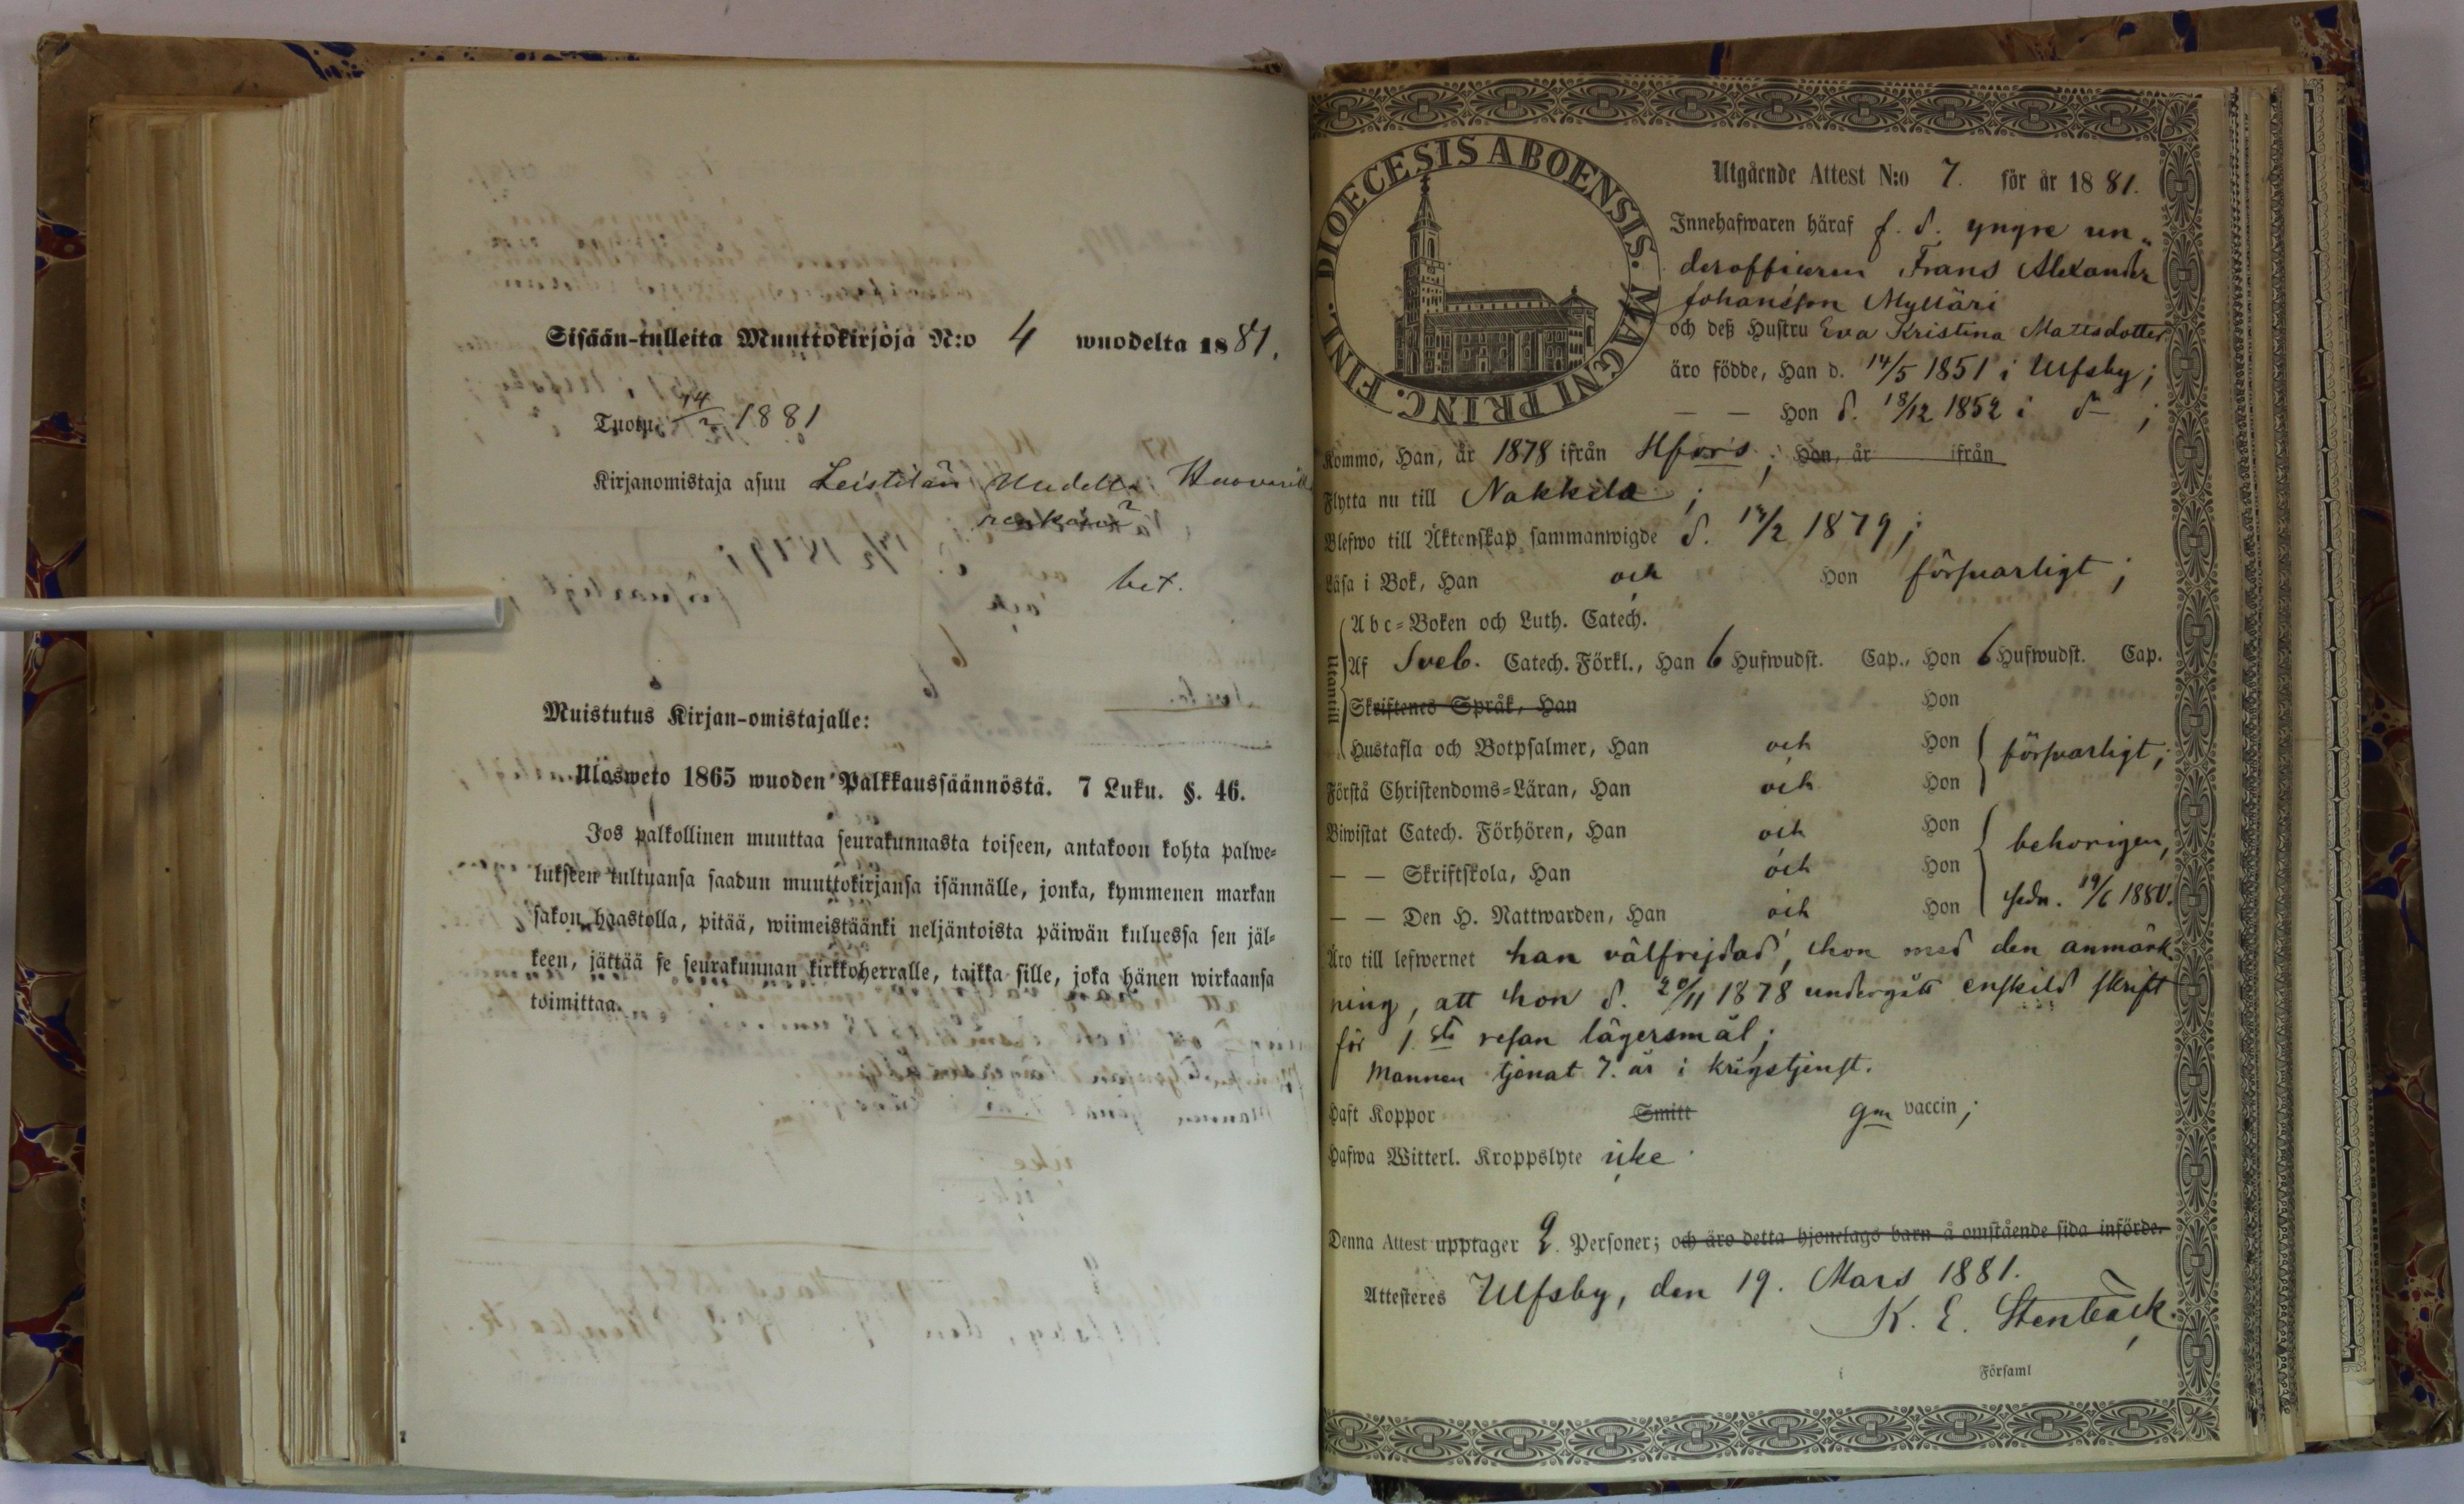 Sisään-tulleita Muuttokirjoja N:o 4 wuodelta 1881.
Tuotu 14/2 1881
Kirjanomistaja asuu Leistilän Uudella
bet.
Muistutus Kirjan-omistajalle:
Ulosweto 1865 wuoden Palkkaussäännöstä. 7 Luku. §. 46.
Jos palkollinen muuttaa seurakunnasta toiseen, antakoon kohta palwe-
lukseen tultuansa saadun muuttokirjansa isännälle, jonka, kymmenen markan
sakon haastolla, pitää, wiimeistäänki neljäntoista päiwän kuluessa sen jäl-
keen, jättää se seurakunnan kirkkoherralle, taikka sille, joka hänen wirkaansa
toimittaa.
DIOECESIS ABOENSIS. MAGNI PRINC. FINL.
Utgående Attest N:o 7. för år 1881.
Innehafwaren häraf f. d. yngre un-
derofficeren Frans Alexander
Johansson Mylläri
och deß Hustru Eva Kristina Mattsdotter
äro födde, Han d. 14/5 1851 i Ulfsby;
— — Hon d. 18/12 1852 i d:o ;
Kommo, Han, år 1878 ifrån Hfors; Hon, år ifrån
Flytta nu till Nakkila ;
Blefwo till Äktenskap sammanwigde d. 14/2 1879;
Läsa i Bok, Han och Hon försvarligt ;
Utantill
Abc-Boken och Luth. Catech.
Af Sveb. Catech. Förkl., Han 6 Hufwudst. Cap., Hon 6 Hufwudst. Cap.
Skriftenes Språk, Han Hon
Hustafla och Botpsalmer, Han och Hon försvarligt;
Första Christendoms-Läran, Han och Hon
Biwistat Catech. Förhören, Han och Hon behörigen,
— — Skriftskola, Han och Hon
— — Den H. Nattwarden, Han och Hon sedn. 19/6 1880.
Äro till lefwernet han välfrejdad, hon med den anmärk-
ning, att hon d. 20/11 1878 undergått enskild skrift
för 1sta resan lägersmål;
Mannen tjenat 7. år i krigstjenst.
Haft Koppor Smitt gm vaccin;
Hafwa Witterl. Kroppslyte icke
Denna Attest upptager 2. Personer; och äro detta hjonelags barn å omstående sida införde.
Attesteres Ulfsby, den 19. Mars 1881.
K. E. Stenbäck.
i Församl